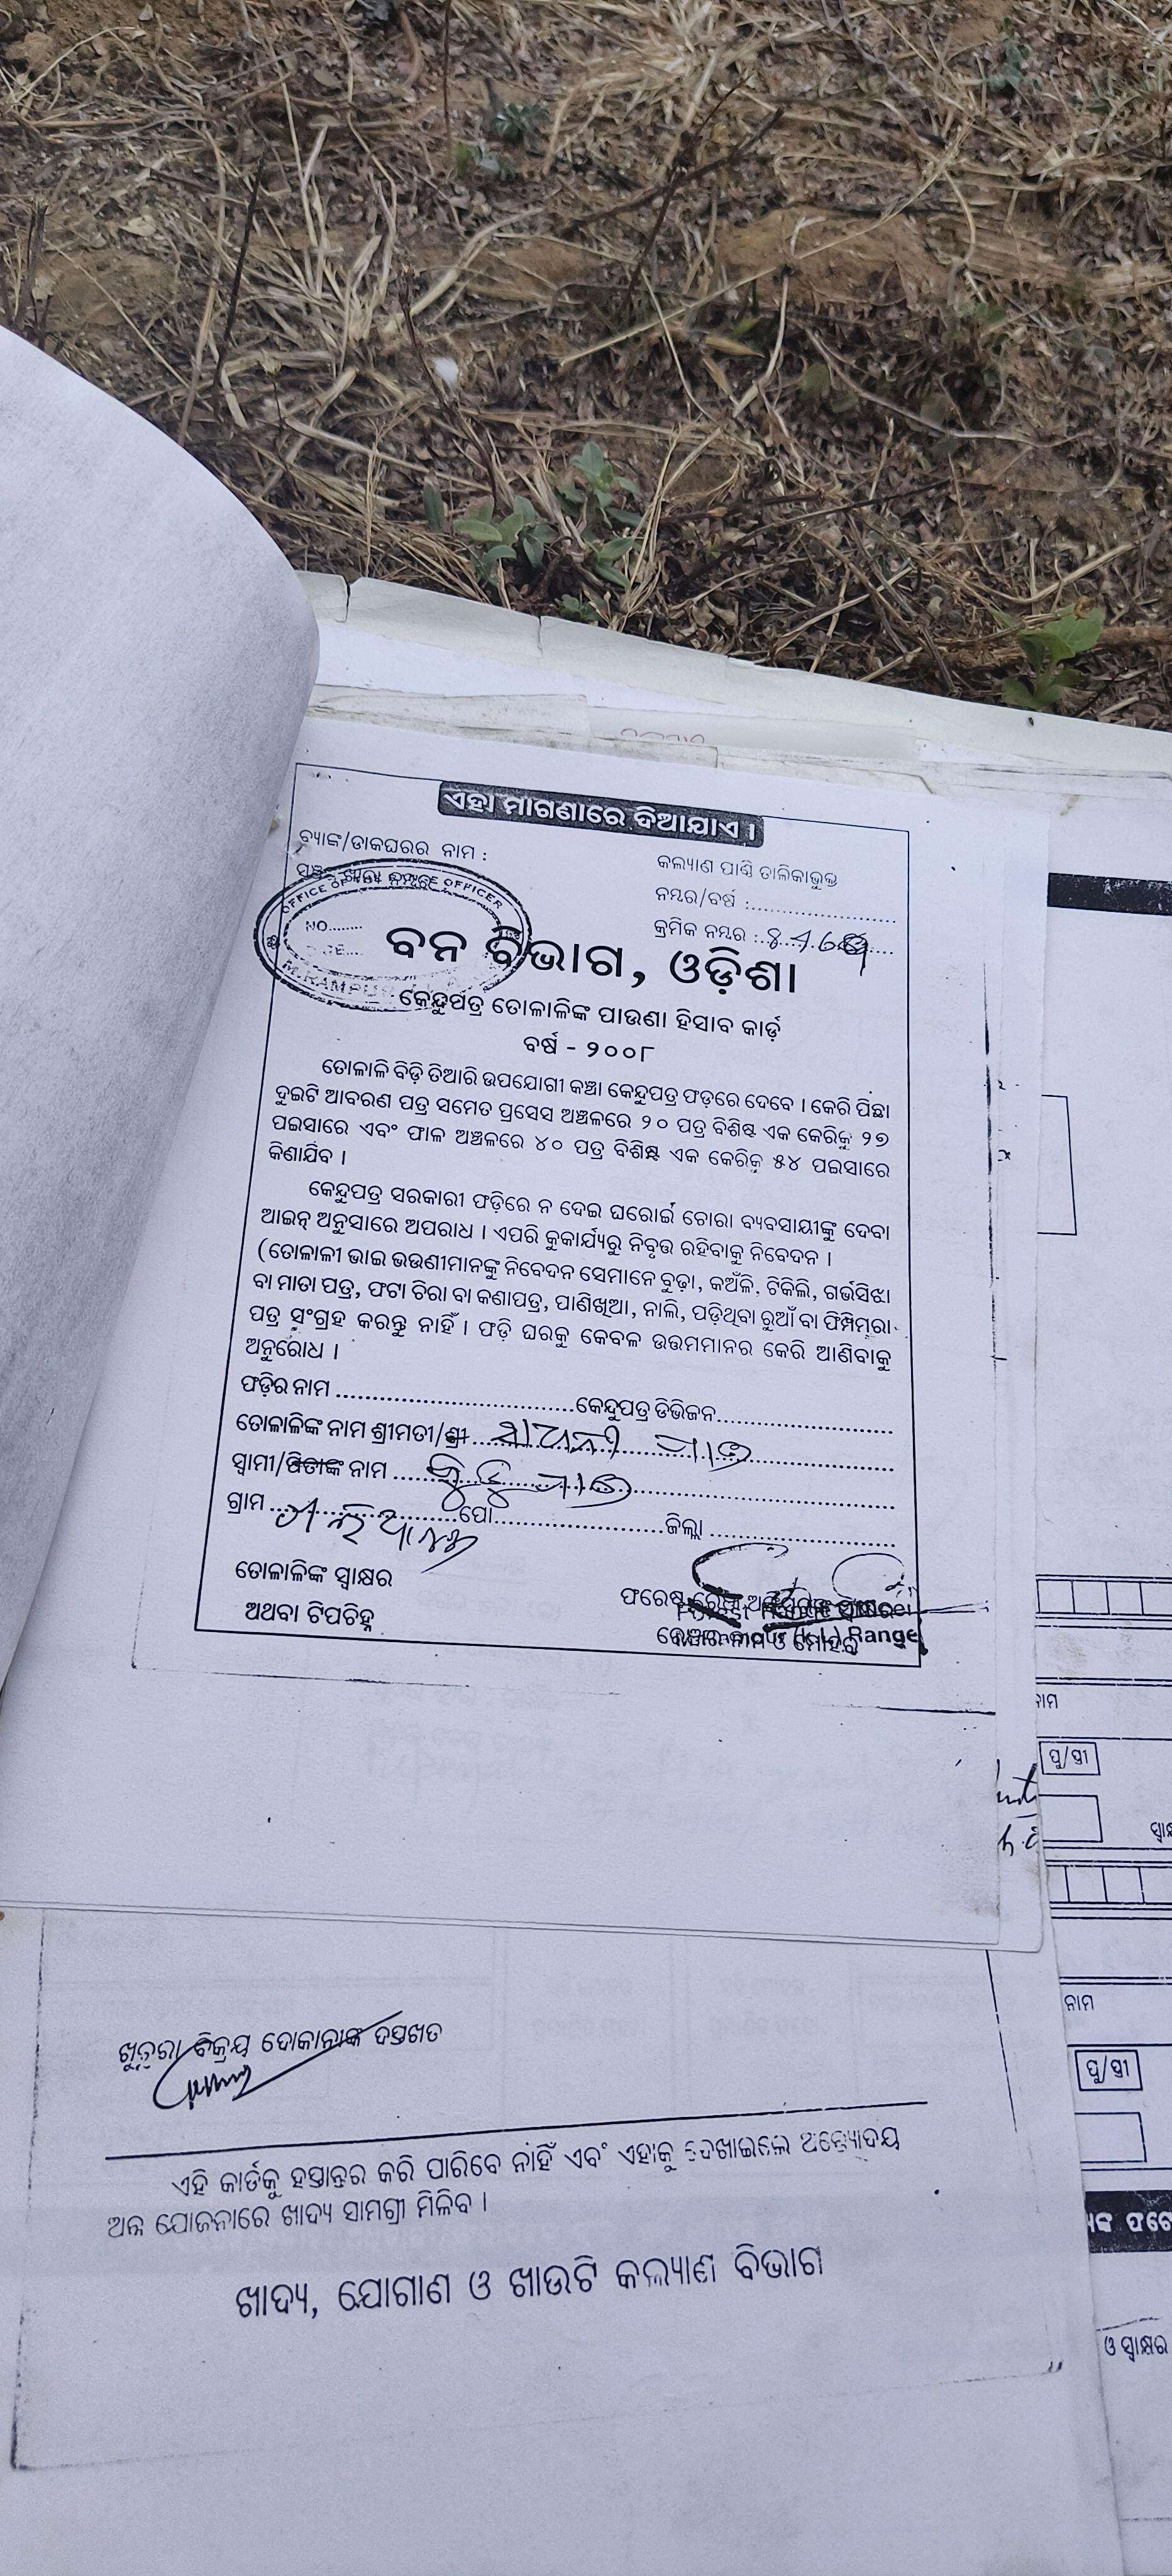 ଏହା ମାଗଣାରେ ଦିଆଯାଏ ।
ବ୍ୟାଙ୍କ/ଡାକଘରର ନାମ :
କଲ୍ୟାଣ ପାଣ୍ଠି ତାଲିକାଭୁକ୍ତ
ନମ୍ବର/ବର୍ଷ :
କ୍ରମିକ ନମ୍ବର :
OFFICE OF THE RANGE OFFICER
NO.
ବନ ବିଭାଗ, ଓଡ଼ିଶା
କେନ୍ଦୁପତ୍ର ତୋଳାଳିଙ୍କ ପାଉଣା ହିସାବ କାର୍ଡ଼
ବର୍ଷ - ୨୦୦୮
ତୋଳାଳି ବିଡ଼ି ତିଆରି ଉପଯୋଗୀ କଞ୍ଚା କେନ୍ଦୁପତ୍ର ଫଡ଼ରେ ଦେବେ । କେରି ପିଛା
ଦୁଇଟି ଆବରଣ ପତ୍ର ସମେତ ପ୍ରସେସ ଅଞ୍ଚଳରେ ୨୦ ପତ୍ର ବିଶିଷ୍ଟ ଏକ କେରିକୁ ୨୭
ପଇସାରେ ଏବଂ ଫାଳ ଅଞ୍ଚଳରେ ୪୦ ପତ୍ର ବିଶିଷ୍ଟ ଏକ କେରିକୁ ୫୪ ପଇସାରେ
କିଣାଯିବ ।
କେନ୍ଦୁପତ୍ର ସରକାରୀ ଫଡ଼ିରେ ନ ଦେଇ ଘରୋଇଁ ଚୋରା ବ୍ୟବସାୟୀଙ୍କୁ ଦେବା
ଆଇନ୍ ଅନୁସାରେ ଅପରାଧ । ଏପରି କୁକାର୍ଯ୍ୟରୁ ନିବୃତ୍ତ ରହିବାକୁ ନିବେଦନ ।
(ତୋଳାଳୀ ଭାଇ ଭଉଣୀମାନଙ୍କୁ ନିବେଦନ ସେମାନେ ବୁଢ଼ା, କଅଁଳି, ଟିକିଲି, ଗର୍ଭସିଝା
ବା ମାତା ପତ୍ର, ଫଟା ଚିରା ବା କଣାପତ୍ର, ପାଣିଖିଆ, ନାଲି, ପଡ଼ିଥିବା ରୁଆଁ ବା ଫିମ୍ପିମରା
ପତ୍ର ସଂଗ୍ରହ କରନ୍ତୁ ନାହିଁ । ଫଡ଼ି ଘରକୁ କେବଳ ଉତ୍ତମମାନର କେରି ଆଣିବାକୁ
ଅନୁରୋଧ ।
ଫଡ଼ିର ନାମ କେନ୍ଦୁପତ୍ର ଡିଭିଜନ
ତୋଳାଳିଙ୍କ ନାମ ଶ୍ରୀମତୀ/ଶ୍ରୀ
ସ୍ୱାମୀ/ପିତାଙ୍କ ନାମ
ଗ୍ରାମ ପୋ ଜିଲ୍ଲା
ତୋଳାଳିଙ୍କ ସ୍ୱାକ୍ଷର
ଅଥବା ଟିପଚିହ୍ନ
ଫରେଷ୍ଟ ରେଞ୍ଜ
Range
ନାମ ଓ ମୋହର
ନାମ
ପୁ/ସ୍ତ୍ରୀ
ଖୁଚୁରା ବିକ୍ରୟ ଦୋକାନୀଙ୍କ ଦସ୍ତଖତ
ନାମ
ପୁ/ସ୍ତ୍ରୀ
ଏହି କାର୍ଡକୁ ହସ୍ତାନ୍ତର କରି ପାରିବେ ନାହିଁ ଏବଂ ଏହାକୁ ଦେଖାଇଲେ ଅନ୍ତ୍ୟୋଦୟ
ଅନ୍ନ ଯୋଜନାରେ ଖାଦ୍ୟ ସାମଗ୍ରୀ ମିଳିବ ।
ଖାଦ୍ୟ, ଯୋଗାଣ ଓ ଖାଉଟି କଲ୍ୟାଣ ବିଭାଗ
ଓ ସ୍ୱାକ୍ଷର